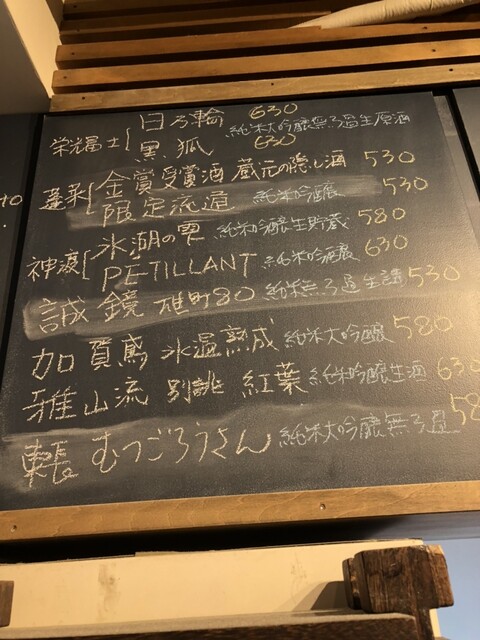 栄光冨士 日乃輪 630
黒狐 630 純米大吟醸無ろ過生原酒
蓬莱 金賞受賞酒 蔵元の隠し酒 530
限定流通 純米吟醸 530
神渡 氷湖の雫 純米吟醸生貯蔵 580
PETILLANT 純米吟醸 630
誠鏡 雄町80 純米無ろ過生詰 530
加賀鳶 氷温熟成 純米大吟醸 580
雅山流 別誂 紅葉 純米吟醸生酒 630
東長 むつごろうさん 純米大吟醸無ろ過 58